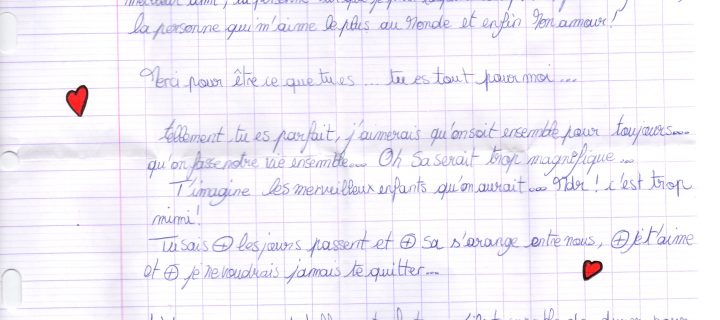 la personne qui m'aime le plus au Monde et enfin Mon amour!
Merci pour être ce que tu es ... tu es tout pour moi ...
tellement tu es parfait, j'aimerais qu'on soit ensemble pour toujours...
qu'on fasse notre vie ensemble... Oh sa serait trop magnifique...
T'imagine les merveilleux enfants qu'on aurait ... Mdr! c'est trop
mimi!
Tu sais ⊕ les jours passent et ⊕ sa s'arange entre nous, ⊕ je t'aime
et ⊕ je ne voudrais jamais te quitter...